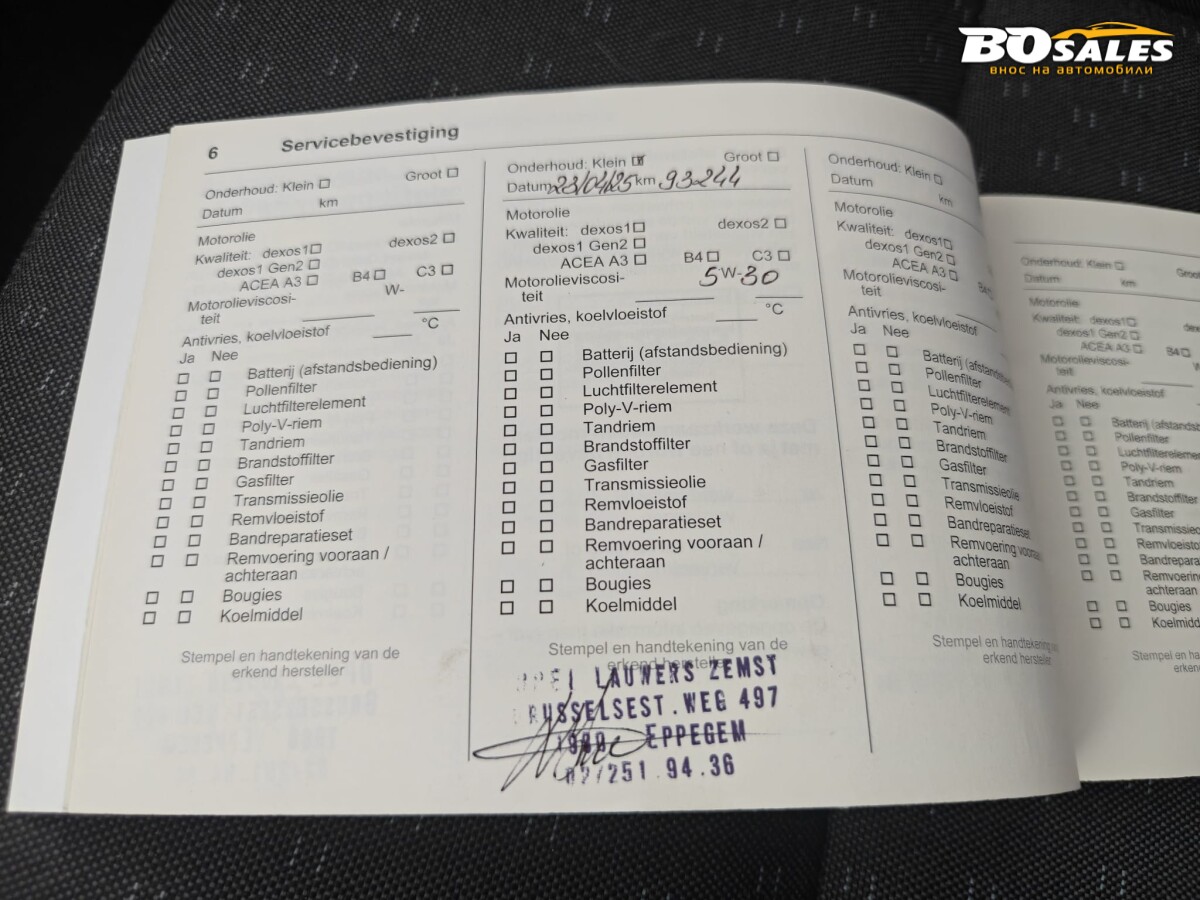 BOSALES
внос на автомобили
6 Servicebevestiging
Onderhoud: Klein ☐ Groot ☐
Datum km
Motorolie
Kwaliteit: dexos1☐ dexos2 ☐
dexos1 Gen2 ☐
ACEA A3 ☐ B4☐ C3 ☐
Motorolieviscosi-
teit W-
Antivries, koelvloeistof °C
Ja Nee
☐ ☐ Batterij (afstandsbediening)
☐ ☐ Pollenfilter
☐ ☐ Luchtfilterelement
☐ ☐ Poly-V-riem
☐ ☐ Tandriem
☐ ☐ Brandstoffilter
☐ ☐ Gasfilter
☐ ☐ Transmissieolie
☐ ☐ Remvloeistof
☐ ☐ Bandreparatieset
☐ ☐ Remvoering vooraan /
achteraan
☐ ☐ Bougies
☐ ☐ Koelmiddel
Stempel en handtekening van de
erkend hersteller
Onderhoud: Klein ☑ Groot ☐
Datum 23/04/25 km 93244
Motorolie
Kwaliteit: dexos1☐ dexos2 ☐
dexos1 Gen2 ☐
ACEA A3 ☐ B4 ☐ C3 ☐
Motorolieviscosi-
teit 5 W-30
Antivries, koelvloeistof °C
Ja Nee
☐ ☐ Batterij (afstandsbediening)
☐ ☐ Pollenfilter
☐ ☐ Luchtfilterelement
☐ ☐ Poly-V-riem
☐ ☐ Tandriem
☐ ☐ Brandstoffilter
☐ ☐ Gasfilter
☐ ☐ Transmissieolie
☐ ☐ Remvloeistof
☐ ☐ Bandreparatieset
☐ ☐ Remvoering vooraan /
achteraan
☐ ☐ Bougies
☐ ☐ Koelmiddel
Stempel en handtekening van de
erkend hersteller
LAUWERS ZEMST
BRUSSELSEST.WEG 497
1980 EPPEGEM
02/251.94.36
Onderhoud: Klein ☐
Datum km
Motorolie
Kwaliteit: dexos1☐
dexos1 Gen2 ☐
ACEA A3 ☐ B4☐
Motorolieviscosi-
teit
Antivries, koelvloeistof
Ja Nee
☐ ☐ Batterij
☐ ☐ Pollenfilter
☐ ☐ Luchtfilterelement
☐ ☐ Poly-V-riem
☐ ☐ Tandriem
☐ ☐ Brandstoffilter
☐ ☐ Gasfilter
☐ ☐ Transmissieolie
☐ ☐ Remvloeistof
☐ ☐ Bandreparatieset
☐ ☐ Remvoering
achteraan
☐ ☐ Bougies
☐ ☐ Koelmiddel
Stempel en handtekening
erkend hersteller
Onderhoud: Klein ☐
Datum km
Motorolie
Kwaliteit: dexos1☐
dexos1 Gen2 ☐
ACEA A3 ☐ B4☐
Motorolieviscosi-
teit
Antivries, koelvloeistof
Ja Nee
☐ ☐ Batterij
☐ ☐ Pollenfilter
☐ ☐ Luchtfilterelement
☐ ☐ Poly-V-riem
☐ ☐ Tandriem
☐ ☐ Brandstoffilter
☐ ☐ Gasfilter
☐ ☐
☐ ☐
☐ ☐
☐ ☐ Remvoering
achteraan
☐ ☐ Bougies
☐ ☐
Stempel en
erkend